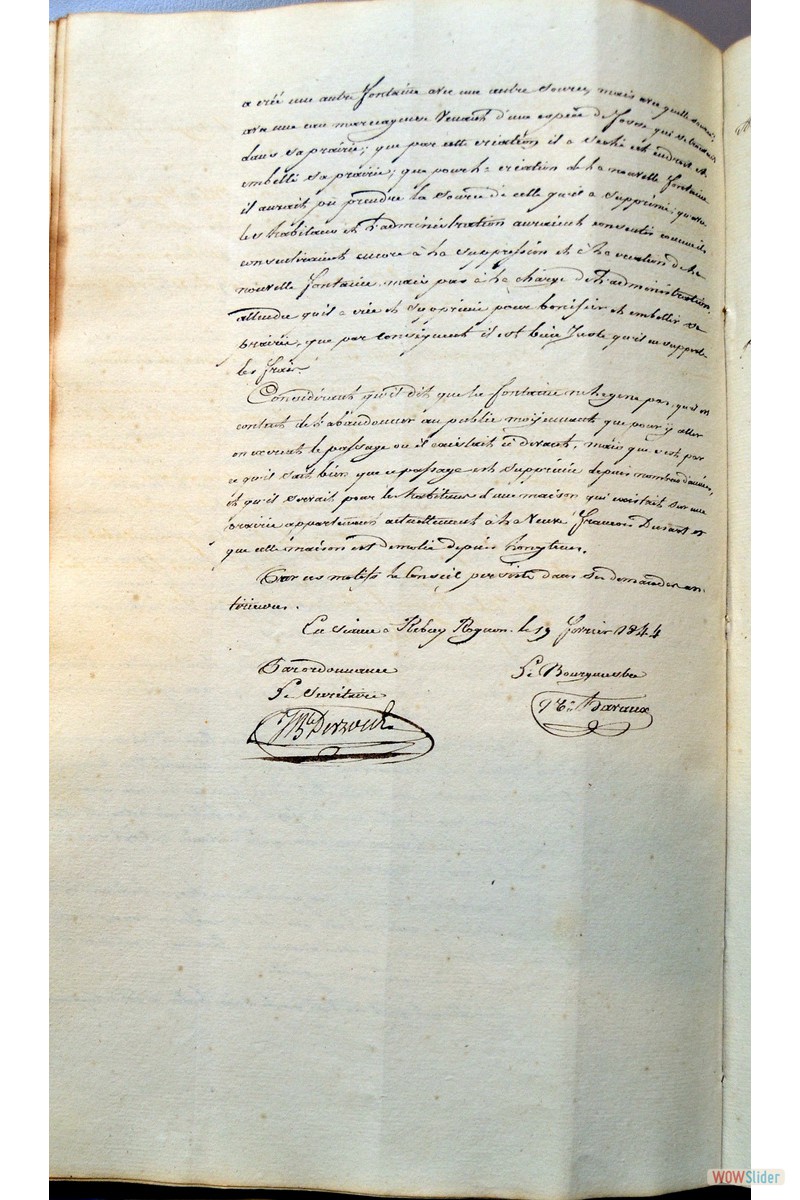 a créé une autre fontaine avec une autre source, mais avec quelle source;
avec une eau marecageuse venant d'une espèce de fosse qui se trouvait
dans sa prairie; que par cette création il a seché cet endroit et
embelli sa prairie; que pour la création de la nouvelle fontaine
il aurait pu prendre la source de celle qu'il a supprimé; qu'alors
les habitans et l'administration auraient consentis comme ils
consentiraient encore à la suppression et à la création de la
nouvelle fontaine, mais pas à la charge de l'administration,
attendu qu'il a créé et supprimé pour bonifier et embellir sa
prairie, que par conséquent il est bien juste qu'il en supporte
les frais.
Considérant qu'il dit que la fontaine ne le gène pas, qu'il est
content de l'abandonner au public moÿennant que pour ÿ aller
on ouvrait le passage où il existait ci devant, mais que c'est par
ce qu'il sait bien que ce passage est supprimé depuis nombre d'années,
et qu'il servait pour les habitans d'une maison qui existait sur une
prairie appartenant actuellement à la Veuve François et
que cette maison est demolie depuis longtems.
Par ces motifs le Conseil persiste dans ses demandes an-
térieures.
En séance à le 19 février 1844
Par ordonnance
Le Secrétaire
Le Bourguemestre